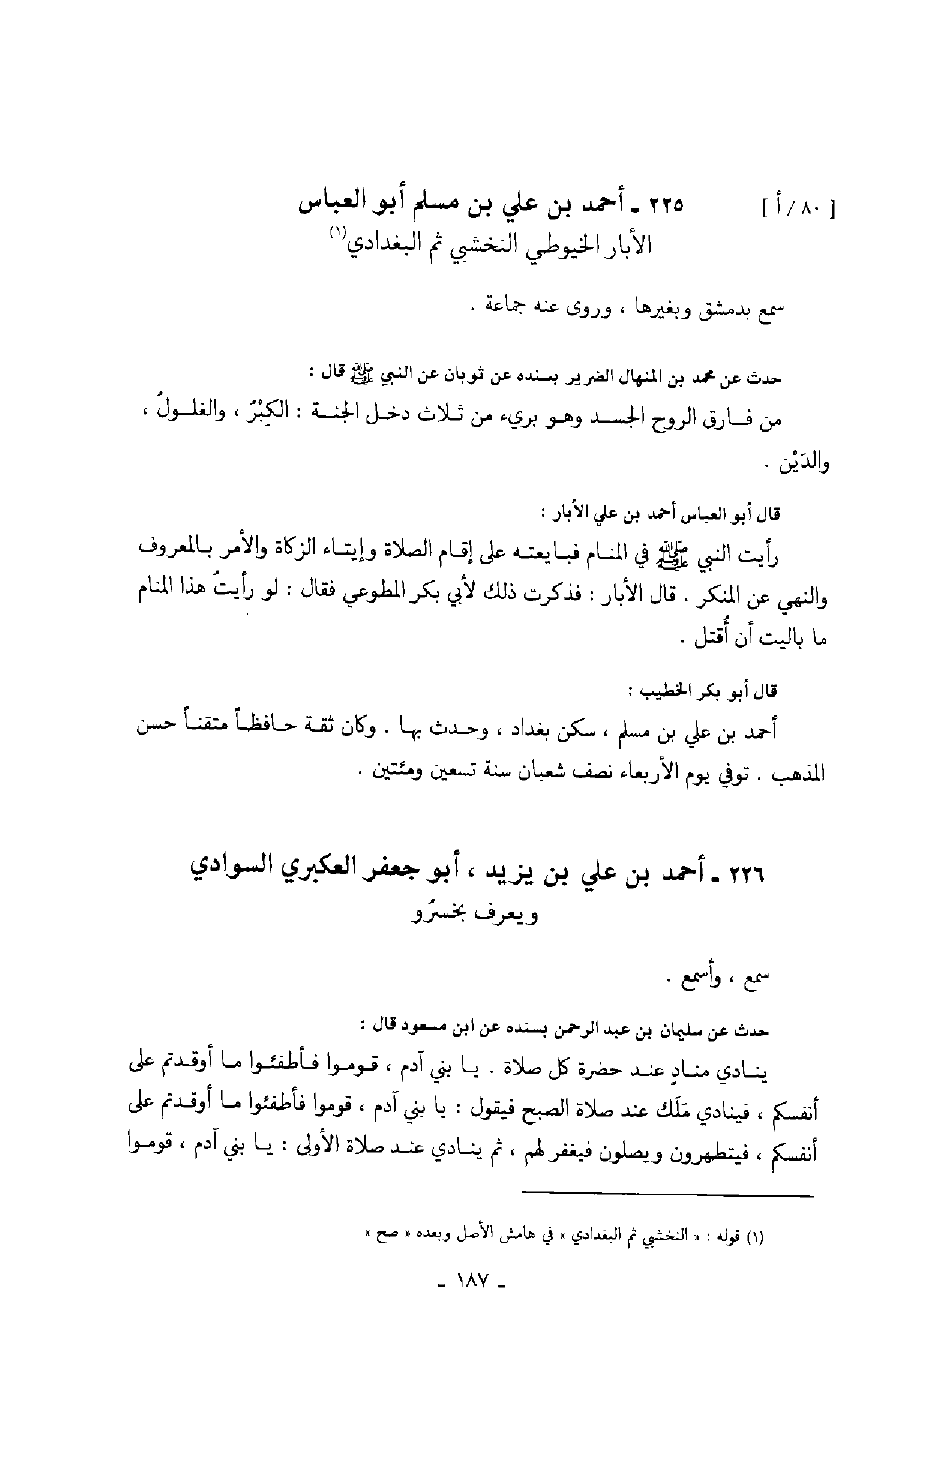 [ ٨٠/أ ] ٢٢٥ ـ أحمد بن علي بن مسلم أبو العباس
الأبار الخيوطي النخشبي ثم البغدادي(١)
سمع بدمشق وبغيرها ، وروى عنه جماعة .
حدث عن محمد بن المنهال الضرير بسنده عن ثوبان عن النبي ﷺ قال :
من فارق الروح الجسد وهو بريء من ثلاث دخل الجنة : الكِبْرُ ، والغلولُ ،
والدَيْن .
قال أبو العباس أحمد بن علي الأبار :
رأيت النبي ﷺ في المنام فبايعته على إقام الصلاة وإيتاء الزكاة والأمر بالمعروف
والنهي عن المنكر . قال الأبار : فذكرت ذلك لأبي بكر المطوعي فقال : لو رأيتُ هذا المنام
ما باليت أن أُقتل .
قال أبو بكر الخطيب :
أحمد بن علي بن مسلم ، سكن بغداد ، وحدث بها . وكان ثقة حافظاً متقناً حسن
المذهب . توفي يوم الأربعاء نصف شعبان سنة تسعين ومئتين .
٢٢٦ ـ أحمد بن علي بن يزيد ، أبو جعفر العكبري السوادي
ويعرف بخسرُو
سمع ، وأسمع .
حدث عن سليمان بن عبد الرحمن بسنده عن ابن مسعود قال :
ينادي منادٍ عند حضرة كل صلاة . يا بني آدم ، قوموا فأطفئوا ما أوقدتم على
أنفسكم ، فينادي مَلَك عند صلاة الصبح فيقول : يا بني آدم ، قوموا فأطفئوا ما أوقدتم على
أنفسكم ، فيتطهرون ويصلون فيغفر لهم ، ثم ينادي عند صلاة الأولى : يا بني آدم ، قوموا
(١) قوله : « النخشبي ثم البغدادي » في هامش الأصل وبعده « صح »
ـ ١٨٧ ـ